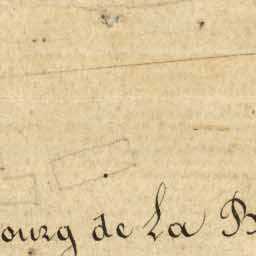 ourg de La B